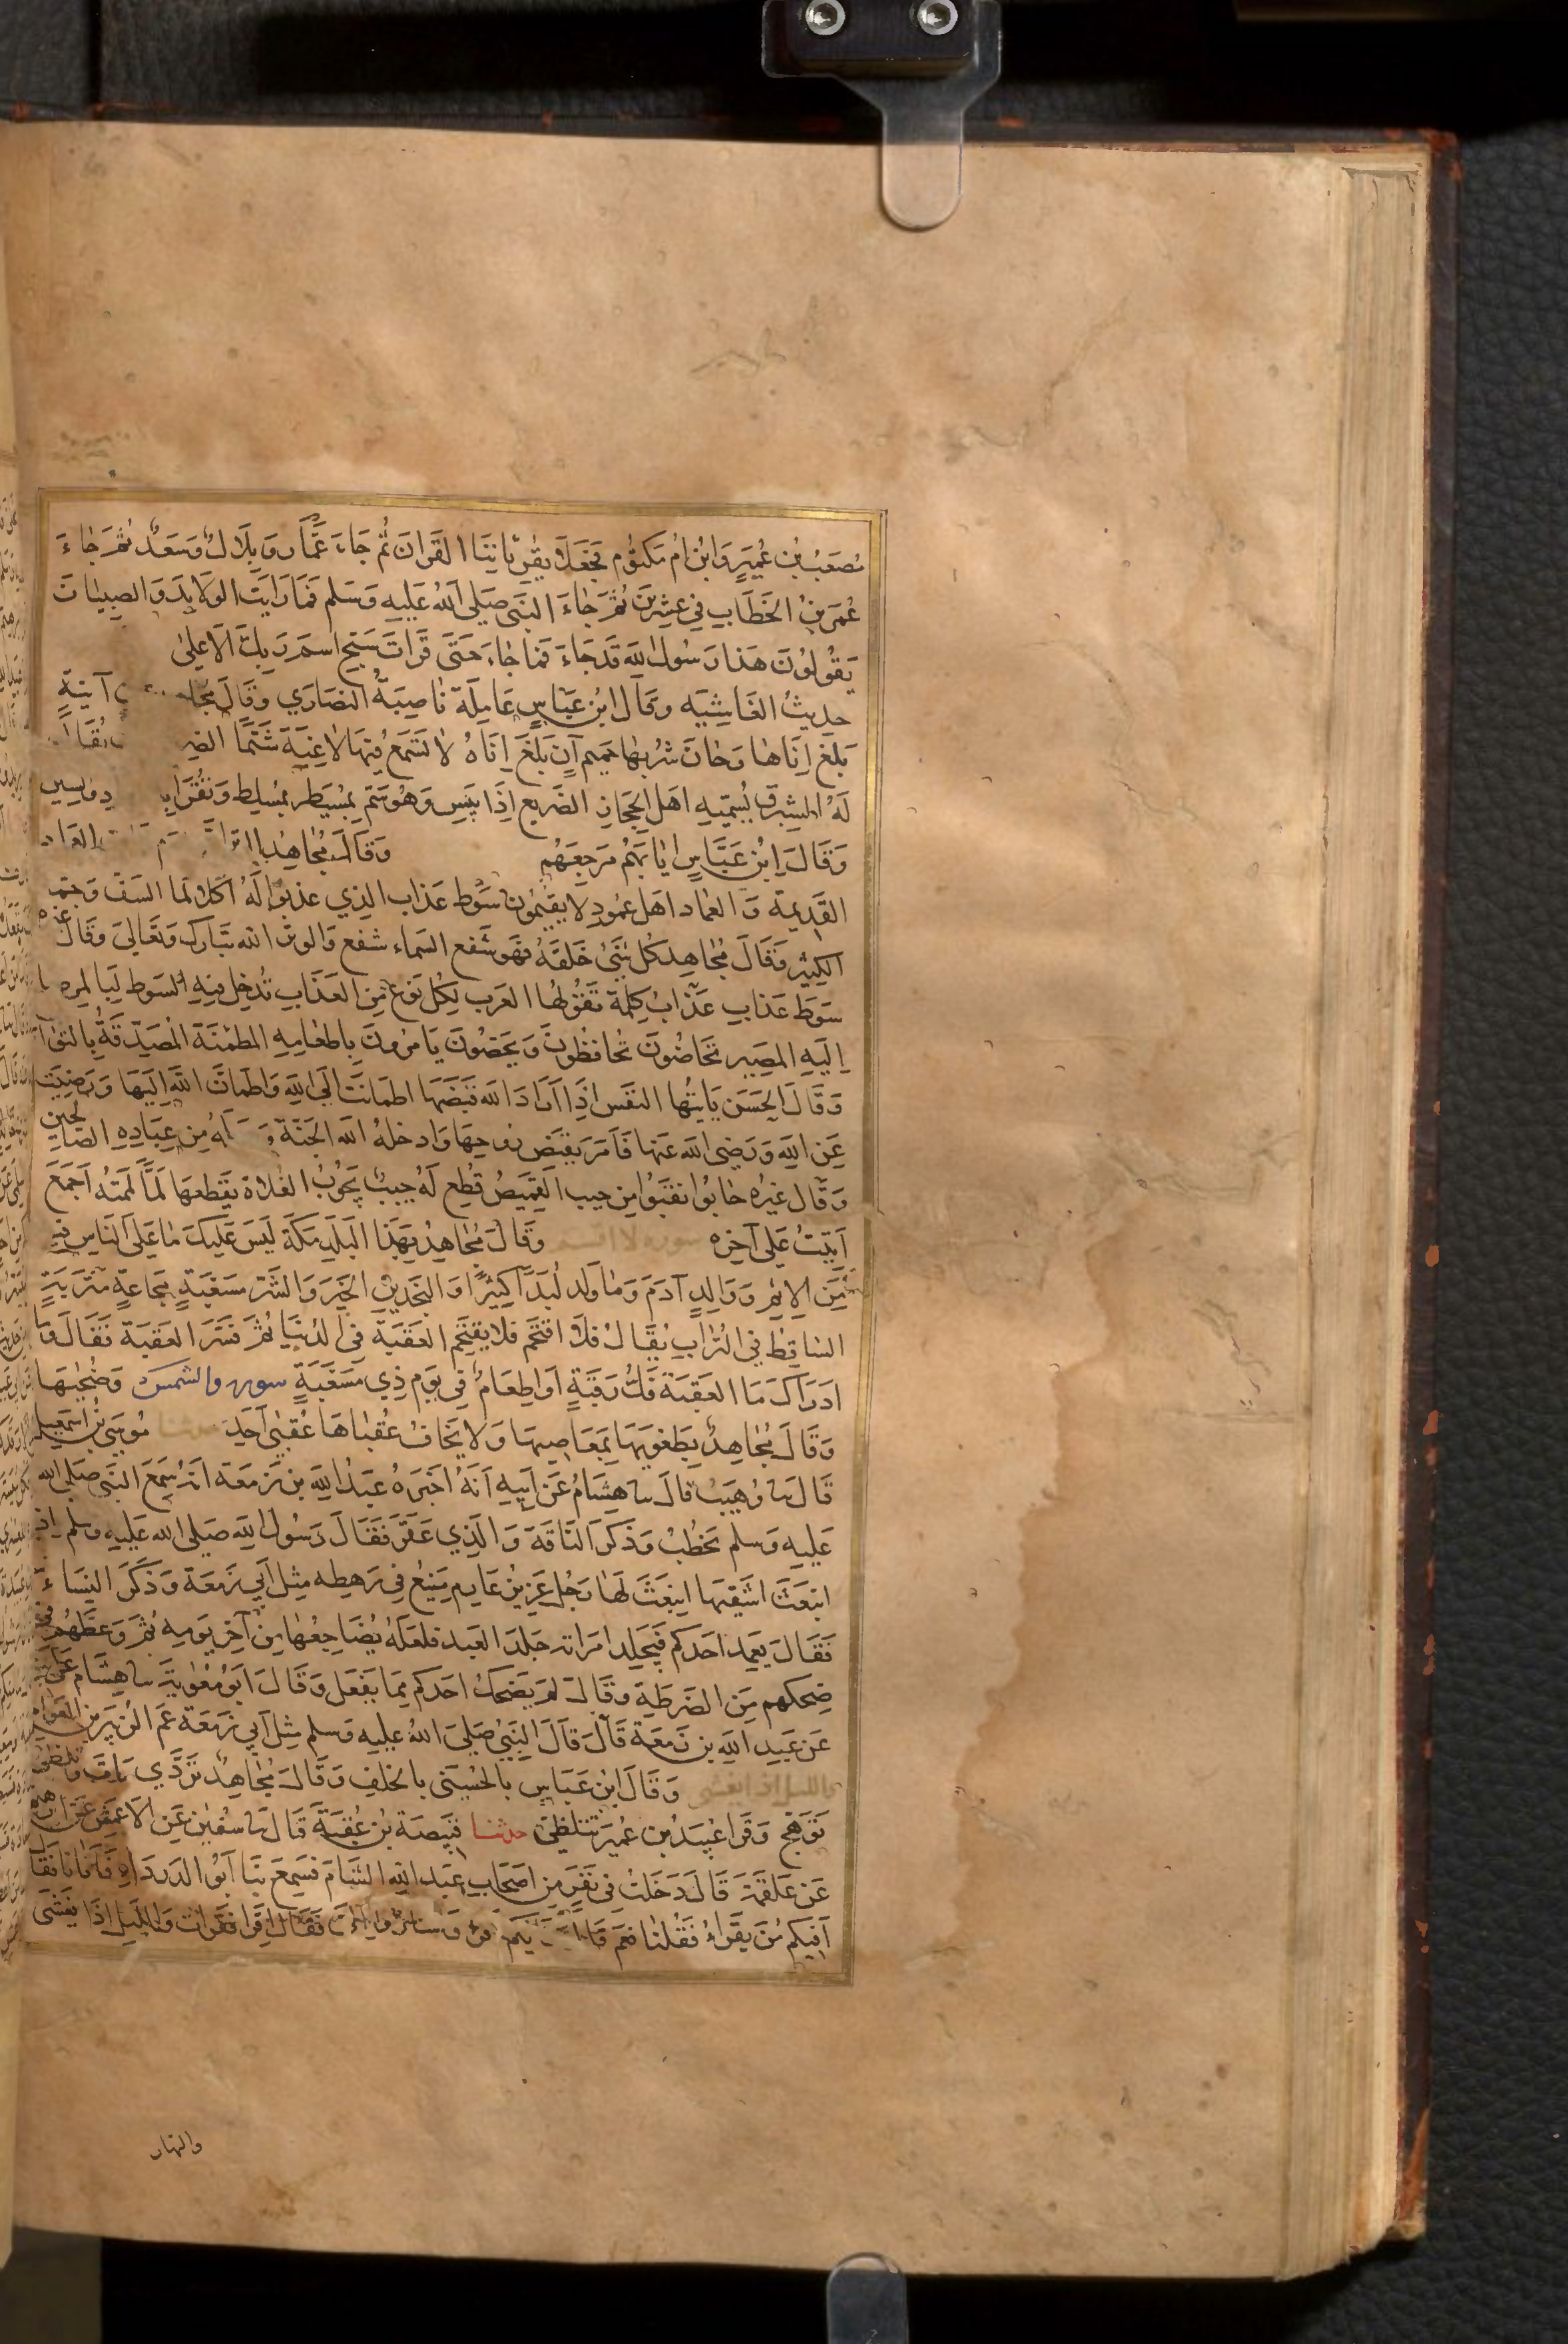 مُصْعَبُ بْن عُمَيرٍ وَابْنُ ام مَكتوُم فَجَعَلا يقْرِئانِنَا القرانَ ثُم جَاءَ عَمَّار وَبِلَال وَسَعْد ثمَّ جَاءَ
عُمَر بنُ الخَطَابِ فِي عِشِرينَ ثمَّ جَاءَ النبَى صَلَى اللهُ عَليهِ وَسَلم فَمَا رَايَت الوَلايدَ وَالصِبيَانَ
يَقُولوُنَ هَذا رَسُولُ اللهِ قَد جَاءَ فمَا جَاءَ حَتى قَراتَ سَبَحِ اسمَ رَبِكَ الاعلىٰ
حديثُ الغَاشِيَه وقَال ابُن عَبَاسٍ عَامِلَة نَاصِبَةُ النصَارَي وَقَالَ آنيَةٍ
بَلَغَ اِنَاهَا وَحَانَ شُربهَا حَميم آنٍ بَلَغَ اِنَاهُ لاٰ تَسَمعُ فيهَا لاٰغِيَةً شَتْمًا
لَهُ الشِبرِق يُسمّيهِ اهَل الحِجَازِ الضَريع اِذَا يبَسِ وَهُوَ سَم بمُسَيَطر بمُسَلِط وَيُقرَا
وَقَالَ ابْن عَبَّاسٍ ايَابَهُم مَرجِعَهُم وَقَالَ مُجَاهِد
القَدِيمة وَالعمَاد اهَل عمُود لا يقيمُون سَوط عَذاب الذِي عذبوا لَهُ اكلاً لما السَف وَجمّا
الكِثير وَقَالَ مُجَاهِد كُل شَىْ خَلقَهُ فهَو شَفع السَماء شفع وَالوتر الله تَبَارَك وَتعَالىَ وَقَال غيره
سَوطَ عَذابِ عَذَابُ كِلمَة تَقُولُهَا العَرب لكُل نَوع مِنَ العَذَابِ تُدخِل فِيهِ السَوط لَبَا لمرصا
اِلَيهِ المصَير تحَاضُونَ تُحَافِظُونَ وَيحَضُونَ يَامُرونَ باِطعَامِهِ المطمئنَة المُصَدقَةُ بِالثوَاب
وَقَالَ الحَسَن يَايتُهَا النفَس اذَا ارَادَ الله قبَضَهَا اطمَانَت اِلَى اللهِ وَاطمَانَّ اللهُ اليَهَا وَرَضِيَت
عَن اللهِ وَرَضِىَ الله عَنهَا فاَمَر بقبَض رُوحِهَا وَادخلهُ الله الجَنَةَ مِن عِبَادِهِ الصَالحين
وَقَال غيَرهُ جَابُوا نقبَوُا مِن جيبِ القَمِيَصُ قُطِع لَهُ جيب يَجُوبُ الفلاَة يقَطعهَا لَمّاً لمَمتُه اَجمَعَ
اَتَيتُ عَلى آخِرِه سوره لا اقسم وَقَالَ مُجَاهِدٌ بهَذَا البَلَدِ مَكةَ ليَسَ عَليكَ مَا عَلى النَاسِ فيهِ
مِنَ الاِثمِ وَوَالِدٍ آدَمَ وَمَا وَلدَ لُبدَاً كثيرًا وَالنجَدينِ الخَيرَ وَالشَر مَسغَبَةٍ مَجَاعةٍ مَترَبَةٍ
السَاقِط فِي الترَابِ يُقَالُ فلاَ اقتحَم فلاَ يقتحِم العَقَبَةَ في الدُنيَا ثمَّ فسَّرَ العَقبَة فقَال وَمَا
ادرَاكَ مَا العقَبَة فكُ رَقبَةٍ اَو اِطعَامٌ فِي يَوم ذِي مَسغَبَةٍ سوره والشمس وَضُحٰيهَا
وَقَالَ مُجَاهِدٌ بِطَغويهَا بِمَعَاصِيهَا وَلا يَخَافُ عُقبَاهَا عُقبَى اَحَدٍ حدثنا مُوسَى بْن اسمَعِيل
قَال نا وُهَيبُ قالَ نا هِشَامُ عَن ابيهِ اَنَهُ اخَبَرهُ عَبدُ اللهِ بن زمعَة انهُ سَمَع النبَى صَلى الله
عَليهِ وَسلم يَخطُبُ وَذكَرَ النَاقةَ وَالذِي عَقَر فقَالَ رَسُولُ اللهِ صَلى الله عَليهِ وسلم اذ
انبعَثَ اشقَيهَا اِنبَعَثَ لهَا رَجُل عَزِيزُ عَارم مَنيعُ فِي رَهطِه مِثل ابي زمعَة وَذكَرَ النِسَاءَ
فقَالَ يَعمِد احَدكم فيَجلِد امرَاته جَلدَ العَبد فلعَلهُ يُضَاجِعُهَا مِن آخِرِ يَومِه ثمَّ وَعَظهُم في
ضِحكهِم مِنَ الضَرطَةِ وقالَ لِمَ يَضحَكُ احَدكم مِمَا يَفعَل وَقَالَ ابوُ مُعٰويَة نا هِشَام عَن ابيه
عَن عَبدِ اللهِ بن زَمعَة قَالَ قَالَ النبِىُ صَلىَ اللهُ عَليهِ وَسلم مِثلَ اَبي زمعَة عَم الزُبَير بن العَوام
والليل اذا يغشى وَقَالَ ابُن عَبَاسٍ بالحُسنَى بالخلَفِ وَقَالَ مُجَاهدٌ تَردّي مَاتَ وَتلظىٰ
تَوَهج وَقَرا عُبيَدُ بن عُميَر تتلظىٰ حدثنا قبَيصَة بْن عُقبَةَ قَال نا سُفيٰن عَنِ الاَعمَش عَن ابرهيم
عَن عَلقمَة قالَ دَخَلتُ فى نَفَرٍ مِن اصحَابِ عَبدِ اللهِ الشَامَ فسَمِعَ بنَا ابَوُ الدَردَاءِ فاتَانَا فقَال
اَفيكم مَن يَقرَاءُ فَقُلنَا نعم فقَالَ اِقرَا فقَرات وَالليَلِ اِذَا يَغشَى
والنهار